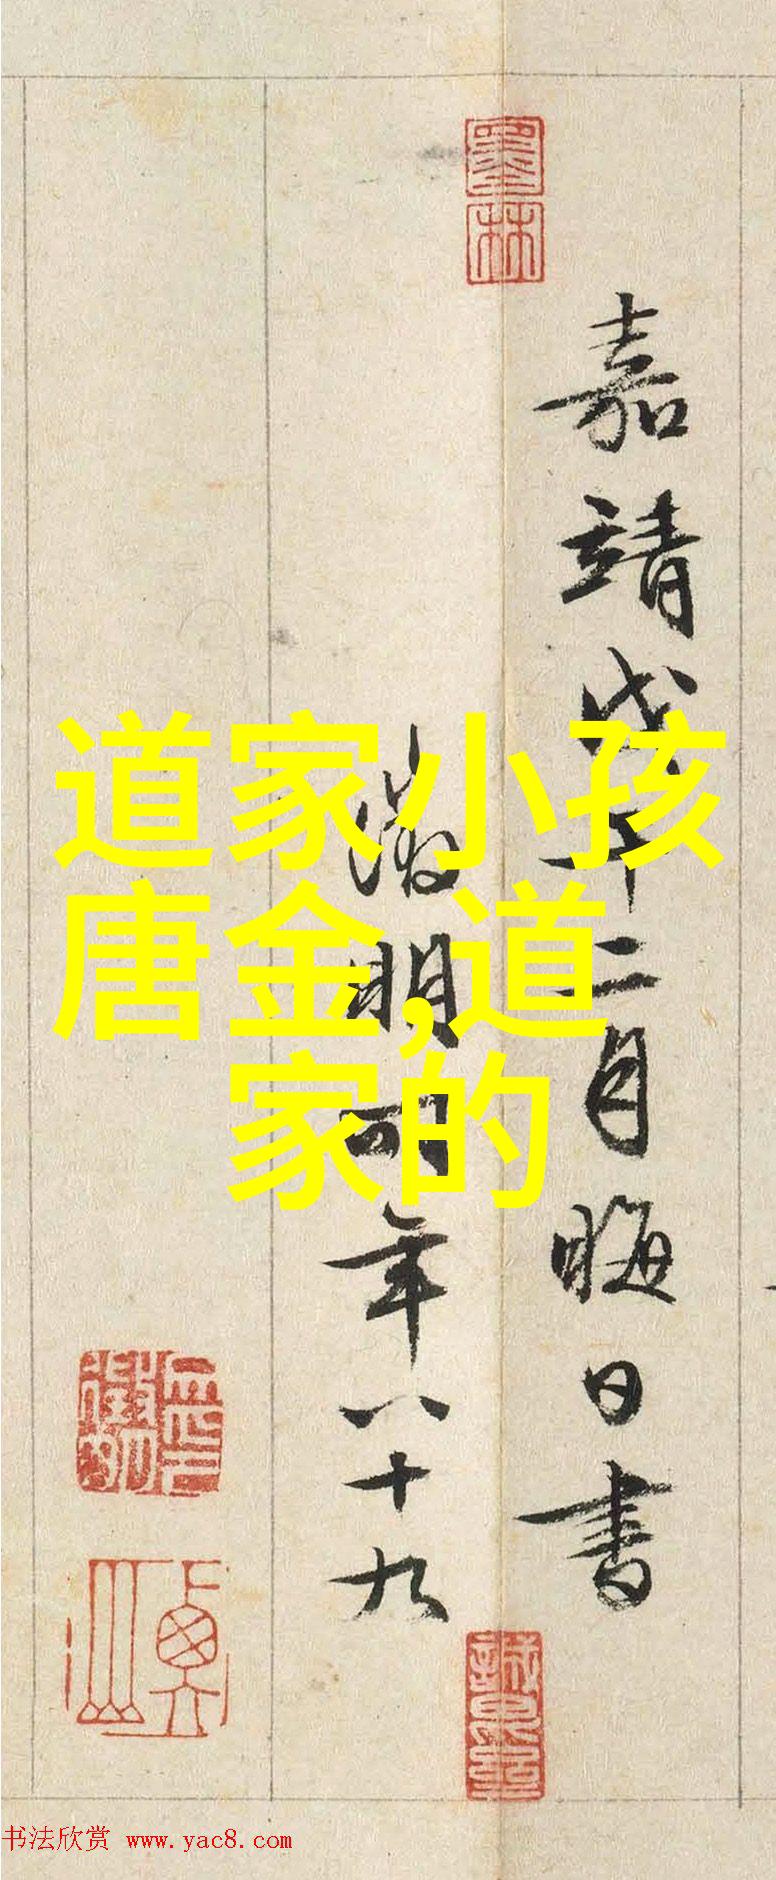 墨林
嘉靖戊午二月晦日書
徵明時年八十九
道家小孩
唐金,道
家的
衡山
书法欣赏 www.yac8.com